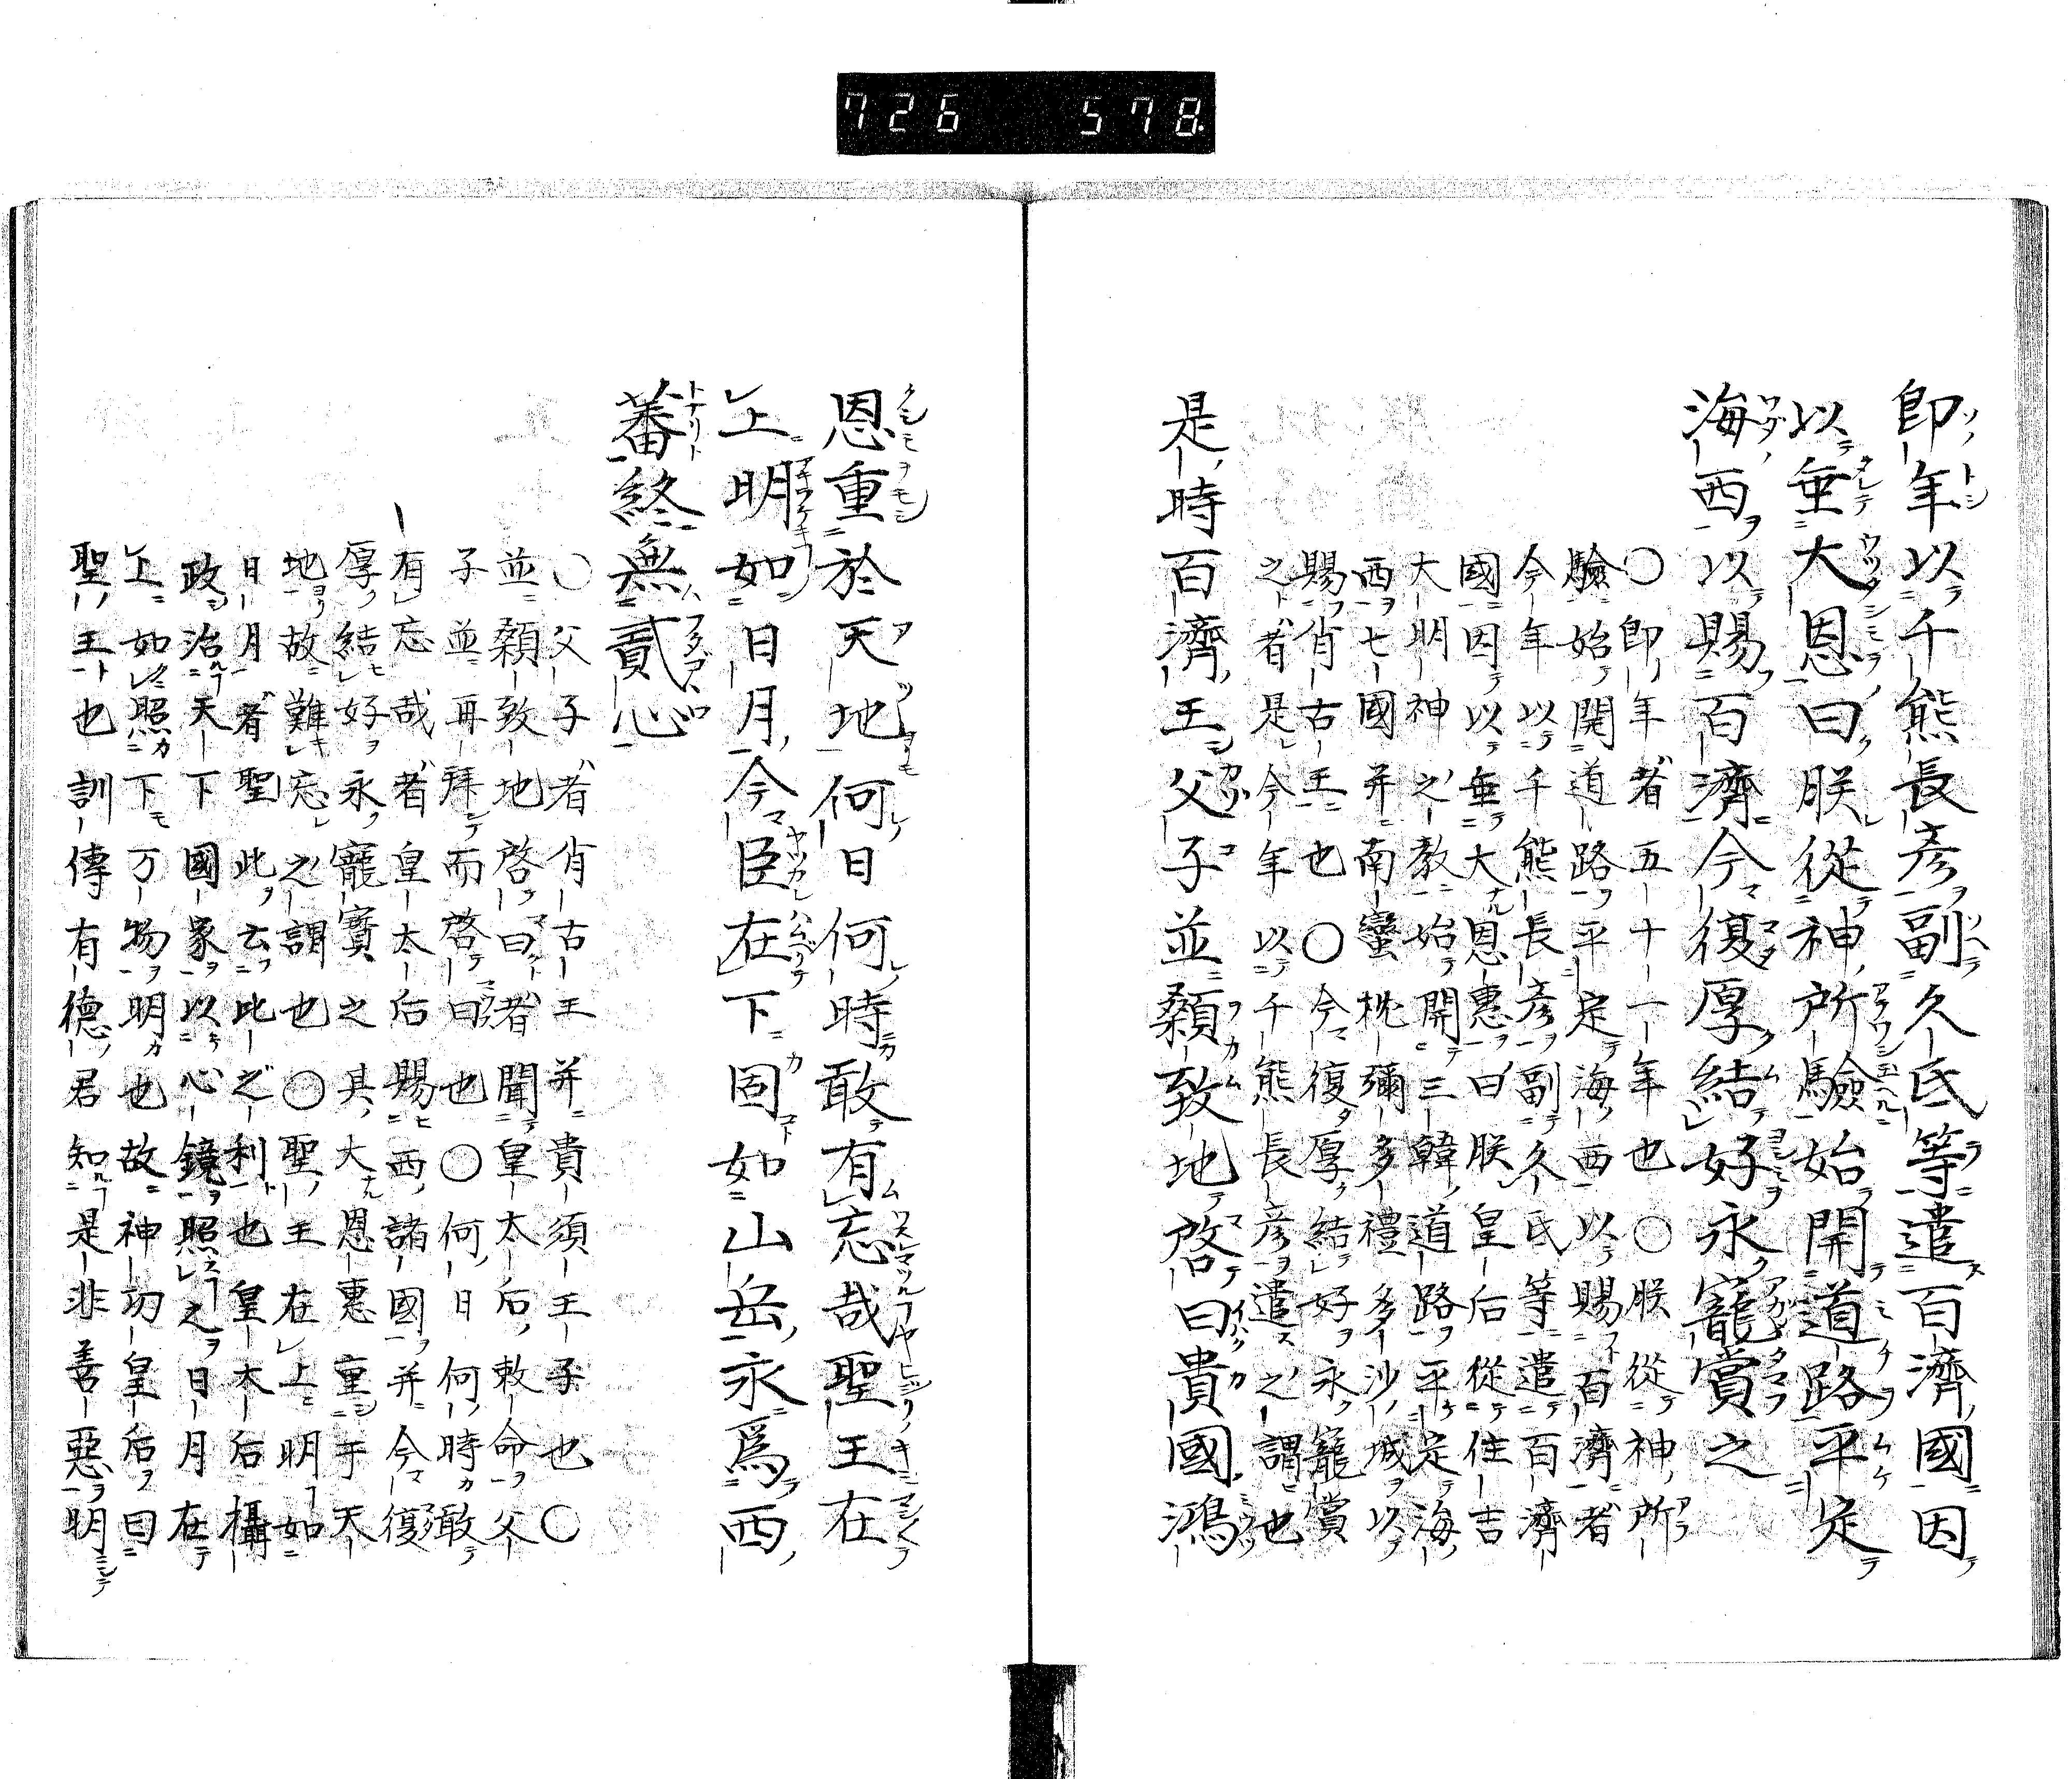 726 578
即年以千熊長彦副久氐等遣百濟國因
以垂大恩曰朕從神所驗始開道路平定
海西以賜百濟今復厚結好永寵賞之
〇即年者五十一年也〇朕從神所
驗始開道路平定海西以賜百濟者
今年以千熊長彦副久氐等遣百濟
國因以垂大恩惠曰朕皇后從住吉
大明神之教始開三韓道路平定海
西七國并南蠻枕彌多禮多沙城以
賜肖古王也〇今復厚結好永寵賞
之者是今年以千熊長彦遣之謂也
是時百濟王父子並顙致地啓曰貴國鴻
恩重於天地何日何時敢有忘哉聖王在
上明如日月今臣在下固如山岳永爲西
蕃終無貳心
〇父子者肖古王并貴須王子也〇
並顙致地啓曰者聞皇太后敕命父
子並再拜而啓曰也〇何日何時敢
有忘哉者皇太后賜西諸國并今復
厚結好永寵賞之其大恩惠重于天
地故難忘之謂也〇聖王在上明如
日月者聖此云比之利也皇太后攝
政治天下國家以心鏡照之日月在
上如照下万物明也故神功皇后曰
聖王也訓傳有德君知是非善惡明